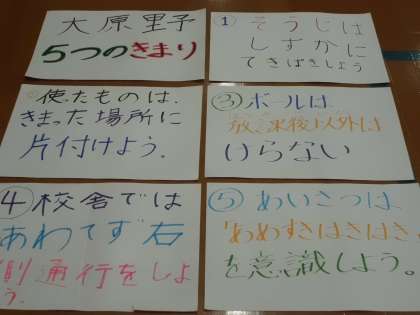 大原里子
5つのきまり
① そうじは
しずかに
てきぱきしよう
使たものは、
きまった場所に
片付けよう。
③ ボールは
放課後以外は
けらない
④ 校舎では
あわてず右
側通行をしよ
う。
⑤ あいさつは
あめすきはきはき。
を意識しよう。